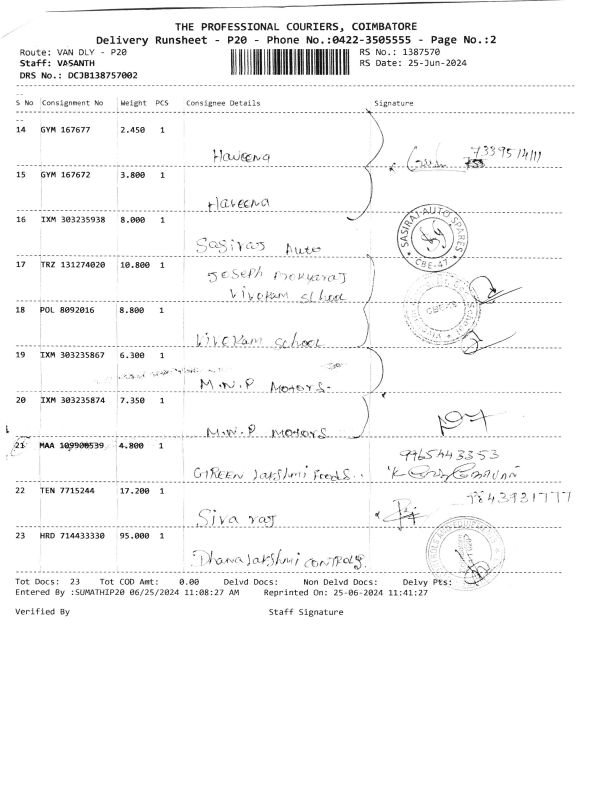 THE PROFESSIONAL COURIERS, COIMBATORE
Delivery Runsheet - P20 - Phone No.:0422-3505555 - Page No.:2
Route: VAN DLY - P20
RS No.: 1387570
Staff: VASANTH
RS Date: 25-Jun-2024
DRS No.: DCJB138757002
S No Consignment No Weight PCS Consignee Details Signature
14 GYM 167677 2.450 1
Haveena
15 GYM 167672 3.800 1
Haveena
16 IXM 303235938 8.000 1
Sasiraj Auto
SASIRAJ AUTO SPARES
* CBE-47 *
17 TRZ 131274020 10.800 1
Joseph
Vivekam School
18 POL 8092016 8.800 1
Vivekam School
19 IXM 303235867 6.300 1
M.N.P Motors.
20 IXM 303235874 7.350 1
M.N.P Motors
21 MAA 109900539 4.800 1
9965443353
GREEN Lakshmi Foods
22 TEN 7715244 17.200 1
9843921777
Siva raj
23 HRD 714433330 95.000 1
Dhanalakshmi CONTROLS
Tot Docs: 23 Tot COD Amt: 0.00 Delvd Docs: Non Delvd Docs: Delvy Pts:
Entered By :SUMATHIP20 06/25/2024 11:08:27 AM Reprinted On: 25-06-2024 11:41:27
Verified By Staff Signature